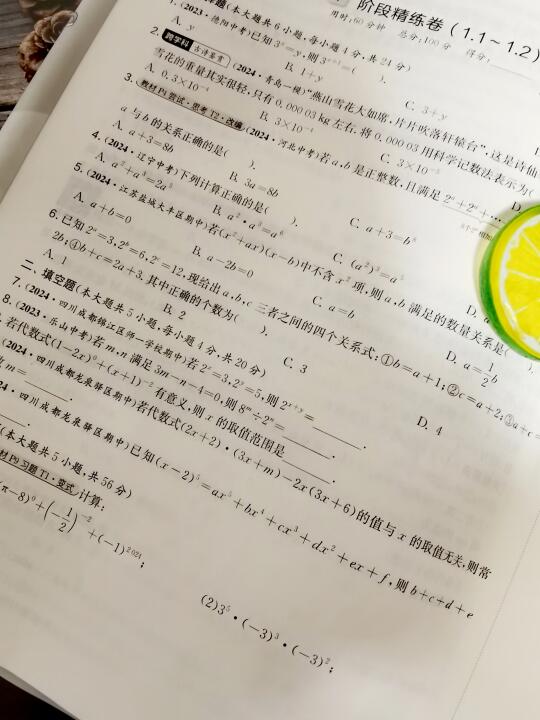 阶段精练卷(1.1~1.2)
用时:60分钟 总分:100分 得分:
择题(本大题共6小题,每小题4分,共24分)
1.(2023·德阳中考)已知3ˣ=y,则3ˣ⁺¹=( ).
A. y B. 1+y C. 3+y
2. 跨学科 古诗鉴赏 (2024·青岛一模)“燕山雪花大如席,片片吹落轩辕台”,这是诗仙
雪花的重量其实很轻,只有0.000 03 kg左右.将0.000 03用科学记数法表示为(
A. 0.3×10⁻⁴ B. 3×10⁻⁴ C. 3×10⁻⁵ D.
3. 教材P4 尝试·思考T2·改编 (2024·河北中考)若a,b是正整数,且满足2ᵃ+2ᵃ+…
a与b的关系正确的是( ).
A. a+3=8b B. 3a=8b C. a+3=b⁸ D.
4.(2024·辽宁中考)下列计算正确的是( ).
A. a²+a³=2a⁵ B. a²·a³=a⁶ C. (a²)³=a⁵ D. a
5.(2024·江苏盐城大丰区期中)若(x²+ax)(x−b)中不含x²项,则a,b满足的数量关系是( ).
A. a+b=0 B. a−2b=0 C. a=b D. a=1/2b
6. 已知2ᵃ=3,2ᵇ=6,2ᶜ=12,现给出a,b,c三者之间的四个关系式:①b=a+1;②c=a+2;③a+c=
2b;④b+c=2a+3.其中正确的个数为( ).
A. 1 B. 2 C. 3 D. 4
二、填空题(本大题共5小题,每小题4分,共20分)
7.(2024·四川成都锦江区师一学校期中)若2ˣ=3,2ʸ=5,则2ˣ⁺ʸ=
8.(2023·乐山中考)若m,n满足3m−n−4=0,则8ᵐ÷2ⁿ=
若代数式(1−2x)⁰+(x+1)⁻²有意义,则x的取值范围是
(2024·四川成都龙泉驿区期中)若代数式(2x+2)·(3x+m)−2x(3x+6)的值与x的取值无关,则常
m=
·四川成都龙泉驿区期中)已知(x−2)⁵=ax⁵+bx⁴+cx³+dx²+ex+f,则b+c+d+e
(本大题共5小题,共56分)
P9 习题T1·变式 计算:
(π−8)⁰+(−1/2)⁻²+(−1)²⁰²⁴; (2)3⁵·(−3)³·(−3)²;